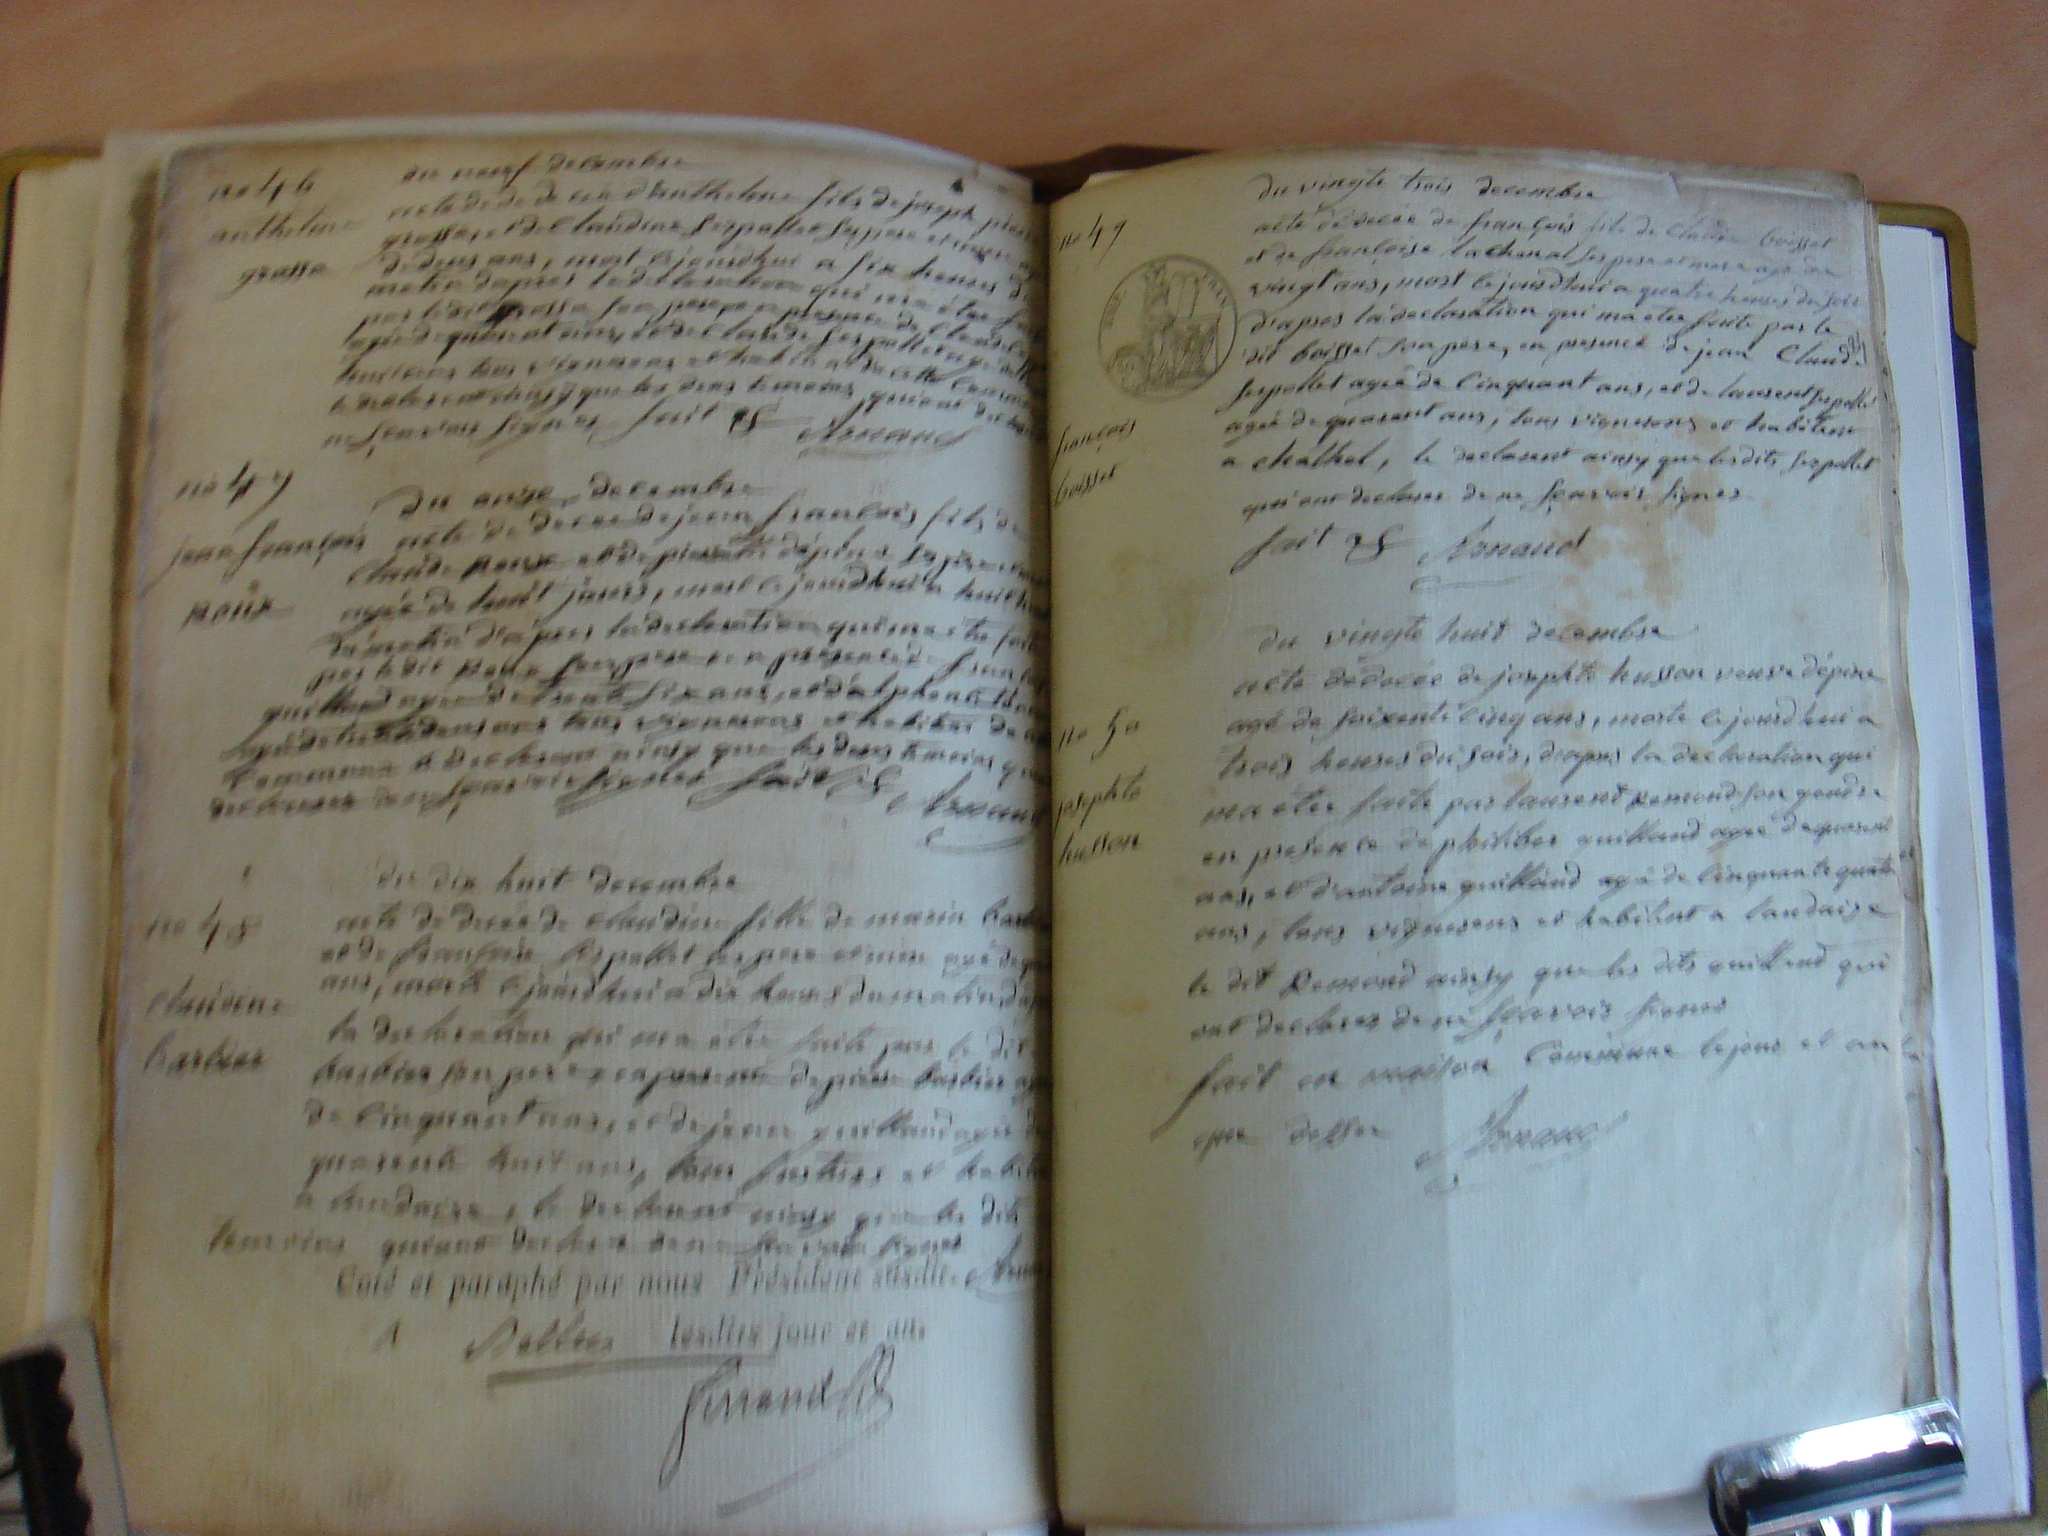 no 46
anthelme
grosse
du neuf decembre
acte de de ces d'anthelme fils de joseph pierre
grosse, et de Claudine serpollet ses pere et mere agé
de deux ans, mort le jourdhui a six heures du
matin d'apres la declaration qui ma éter faite
par le dit grosse son pere, en presence de Claude
agé de quarat ans, et de Claude serpollet agé de
tous vignerons et habitt de cette Commune
le declarent ainsy que les deux temoins qui ont declarer
ne sçavoir signer fait &
Arnaud
no 47
jean françois
roux
du onze decembre
acte de deces de jean françois fils de
Claude roux et de pierrette dépine ses pere et mere
agée de huit jours, mort le jourdhui a huit heures
du matin d'apres la declaration qui ma eter faite
par le dit roux son pere en presence de françois
quilland agée de trente six ans, et d'alphonse
agé de trente deux ans tous vignerons et habitt de cette
Commune le declarent ainsy que les deux temoins qui
declarer de ne sçavoir signer fait &
Arnaud
no 48
Claudine
barbier
du dix huit decembre
acte de decés de Claudine fille de marin barbier
et de françoise serpollet ses pere et mere agé de
ans, morte le jourdhui a dix heures du matin d'apres
la declaration qui ma eter faite par le dit
barbier son pere, en presence de pierre barbier agé
de Cinquant ans, et de jean quilland agée de
quarente huit ans, tous et habit
a landaise, le declarent ainsy que les dits
temoins qui ont declarer de ne sçavoir signer
Arnaud
Coté et paraphé par nous Président susdit.
A Belley lesdits jour et an.
Girrand
no 49
françois
boisset
du vingte trois decembre
acte dédecée de françois fils de Claude boisset
et de françoise lachenal ses pere et mere agé de
vingt ans, mort le jourdhui a quatre heures du soir
d'apres la declaration qui ma eter faite par le
dit boisset son pere, en presence de jean Claude
serpollet ageé de Cinquant ans, et de laurent serpollet
ageé de quarent ans, tous vignerons et habitent
a chathel, le declarent ainsy que les dits serpollet
qui ont declarer de ne sçavoir signer
fait & Arnaud
no 50
josephte
husson
du vingte huit decembre
acte dédecée de josephte husson veuve dépine
agé de soixente Cinq ans, morte le jourdhui a
trois heures du soir, d'apres la declaration qui
ma eter faite par laurent Remond son gendre
en presence de philiber quilland agée de quarent
ans, et d'antoine quilland agé de Cinquante quatre
ans, tous vignerons et habitent a landaise
le dit Remond ainsy que les dits quilland qui
ont declarer de ne sçavoir signer
fait en maison Commune le jour et an
que desser Arnaud